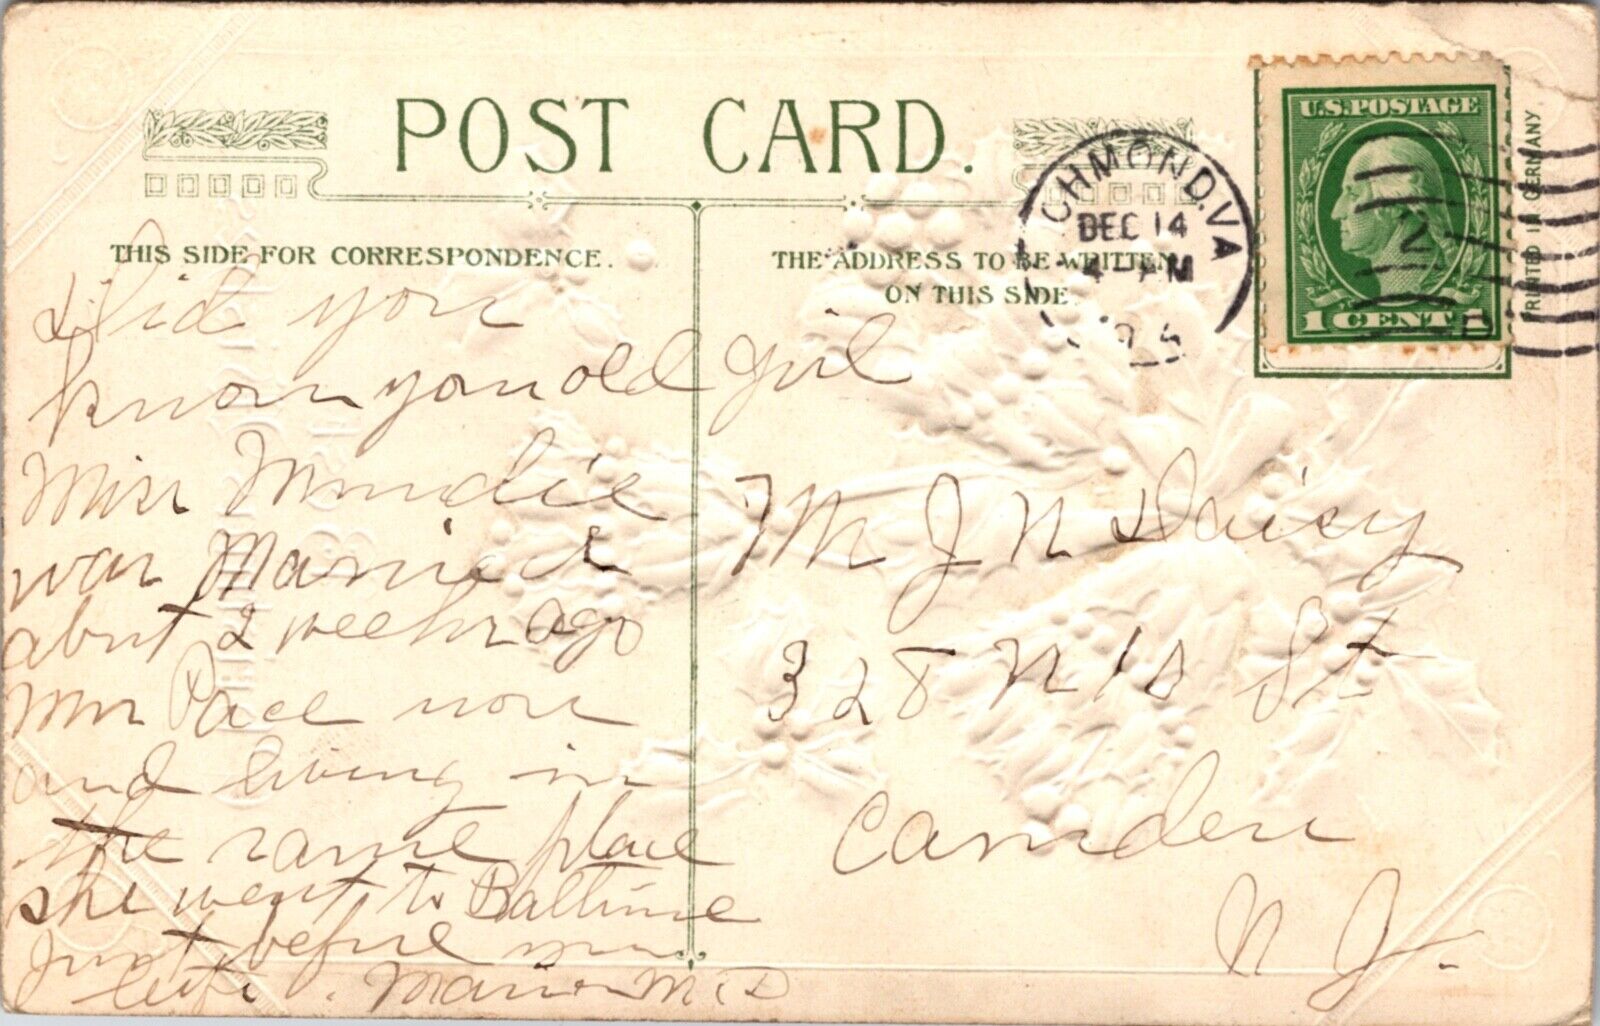 POST CARD.
THIS SIDE FOR CORRESPONDENCE.
THE ADDRESS TO BE WRITTEN
ON THIS SIDE.
U.S. POSTAGE
1 CENT 1
PRINTED IN GERMANY
RICHMOND, VA
DEC 14
PM
Did you
know you old girl
Miss Mondie
was Married
about 2 weeks ago
Mrs Pace now
and living in
the same place
she went to Baltimore
Just before
M J N Daisy
328 N 10 St
Camden
N J.